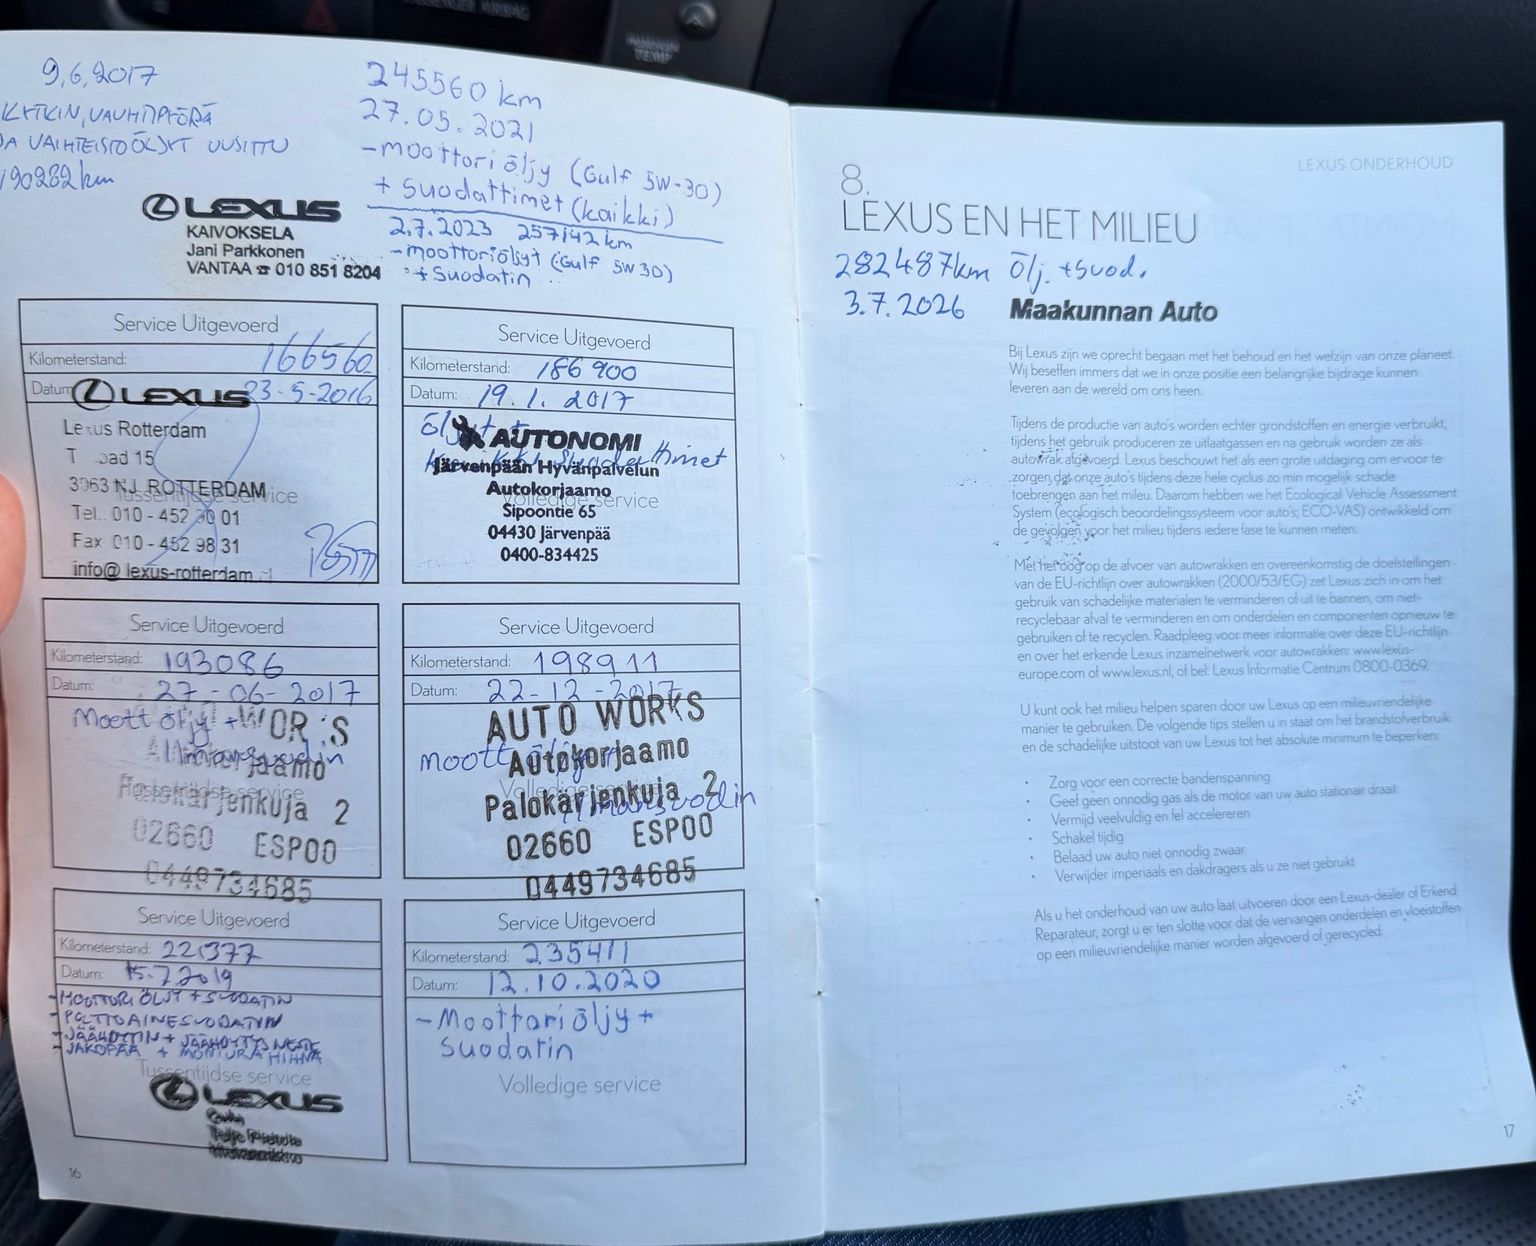 9.6.2017
KYTKIN, VAUHTIPYÖRÄ
JA VAIHTEISTOÖLJYT UUSITTU
190282 km
LEXUS
KAIVOKSELA
Jani Parkkonen
VANTAA ☎ 010 851 8204
245560 km
27.05.2021
-moottoriöljy (Gulf 5W-30)
+ suodattimet (kaikki)
2.7.2023 257142 km
-moottoriöljyt (Gulf 5W30)
+ suodatin
Service Uitgevoerd
Kilometerstand: 166560
Datum: 23-5-2016
LEXUS
Lexus Rotterdam
3063 NJ ROTTERDAM
Tussentijdse service
Tel. 010 - 452 30 01
Fax 010 - 452 98 31
info@lexus-rotterdam
Service Uitgevoerd
Kilometerstand: 186 900
Datum: 19.1.2017
AUTONOMI
Järvenpään Hyvänpalvelun
Autokorjaamo
Volledige service
Sipoontie 65
04430 Järvenpää
0400-834425
Service Uitgevoerd
Kilometerstand: 193086
Datum: 27-06-2017
Moott öljy +
Tussentijdse service
2
02660 ESPOO
0449734685
Service Uitgevoerd
Kilometerstand: 198911
Datum: 22-12-2017
AUTO WORKS
Autokorjaamo
moott öljy
Volledige service
Palokärjenkuja 2
02660 ESPOO
0449734685
Service Uitgevoerd
Kilometerstand: 221377
Datum: 15.7.2019
-MOOTTORIÖLJY + SUODATIN
-POLTTOAINESUODATIN
-JÄÄHDYTIN + JÄÄHDYTYSNESTE
-JAKOPÄÄ + MONIURAHIHNA
Tussentijdse service
LEXUS
Service Uitgevoerd
Kilometerstand: 235411
Datum: 12.10.2020
-Moottoriöljy +
suodatin
Volledige service
16
LEXUS ONDERHOUD
8.
LEXUS EN HET MILIEU
282487km ölj. +suod.
3.7.2026 Maakunnan Auto
Bij Lexus zijn we oprecht begaan met het behoud en het welzijn van onze planeet.
Wij beseffen immers dat we in onze positie een belangrijke bijdrage kunnen
leveren aan de wereld om ons heen.
Tijdens de productie van auto's worden echter grondstoffen en energie verbruikt,
tijdens het gebruik produceren ze uitlaatgassen en na gebruik worden ze als
autowrak afgevoerd. Lexus beschouwt het als een grote uitdaging om ervoor te
zorgen dat onze auto's tijdens deze hele cyclus zo min mogelijk schade
toebrengen aan het milieu. Daarom hebben we het Ecological Vehicle Assessment
System (ecologisch beoordelingssysteem voor auto's; ECO-VAS) ontwikkeld om
de gevolgen voor het milieu tijdens iedere fase te kunnen meten.
Met het oog op de afvoer van autowrakken en overeenkomstig de doelstellingen
van de EU-richtlijn over autowrakken (2000/53/EG) zet Lexus zich in om het
gebruik van schadelijke materialen te verminderen of uit te bannen, om niet-
recyclebaar afval te verminderen en om onderdelen en componenten opnieuw te
gebruiken of te recyclen. Raadpleeg voor meer informatie over deze EU-richtlijn
en over het erkende Lexus inzamelnetwerk voor autowrakken: www.lexus-
europe.com of www.lexus.nl, of bel: Lexus Informatie Centrum 0800-0369.
U kunt ook het milieu helpen sparen door uw Lexus op een milieuvriendelijke
manier te gebruiken. De volgende tips stellen u in staat om het brandstofverbruik
en de schadelijke uitstoot van uw Lexus tot het absolute minimum te beperken:
• Zorg voor een correcte bandenspanning
• Geef geen onnodig gas als de motor van uw auto stationair draait
• Vermijd veelvuldig en fel accelereren
• Schakel tijdig
• Belaad uw auto niet onnodig zwaar
• Verwijder imperiaals en dakdragers als u ze niet gebruikt
Als u het onderhoud van uw auto laat uitvoeren door een Lexus-dealer of Erkend
Reparateur, zorgt u er ten slotte voor dat de vervangen onderdelen en vloeistoffen
op een milieuvriendelijke manier worden afgevoerd of gerecycled.
17